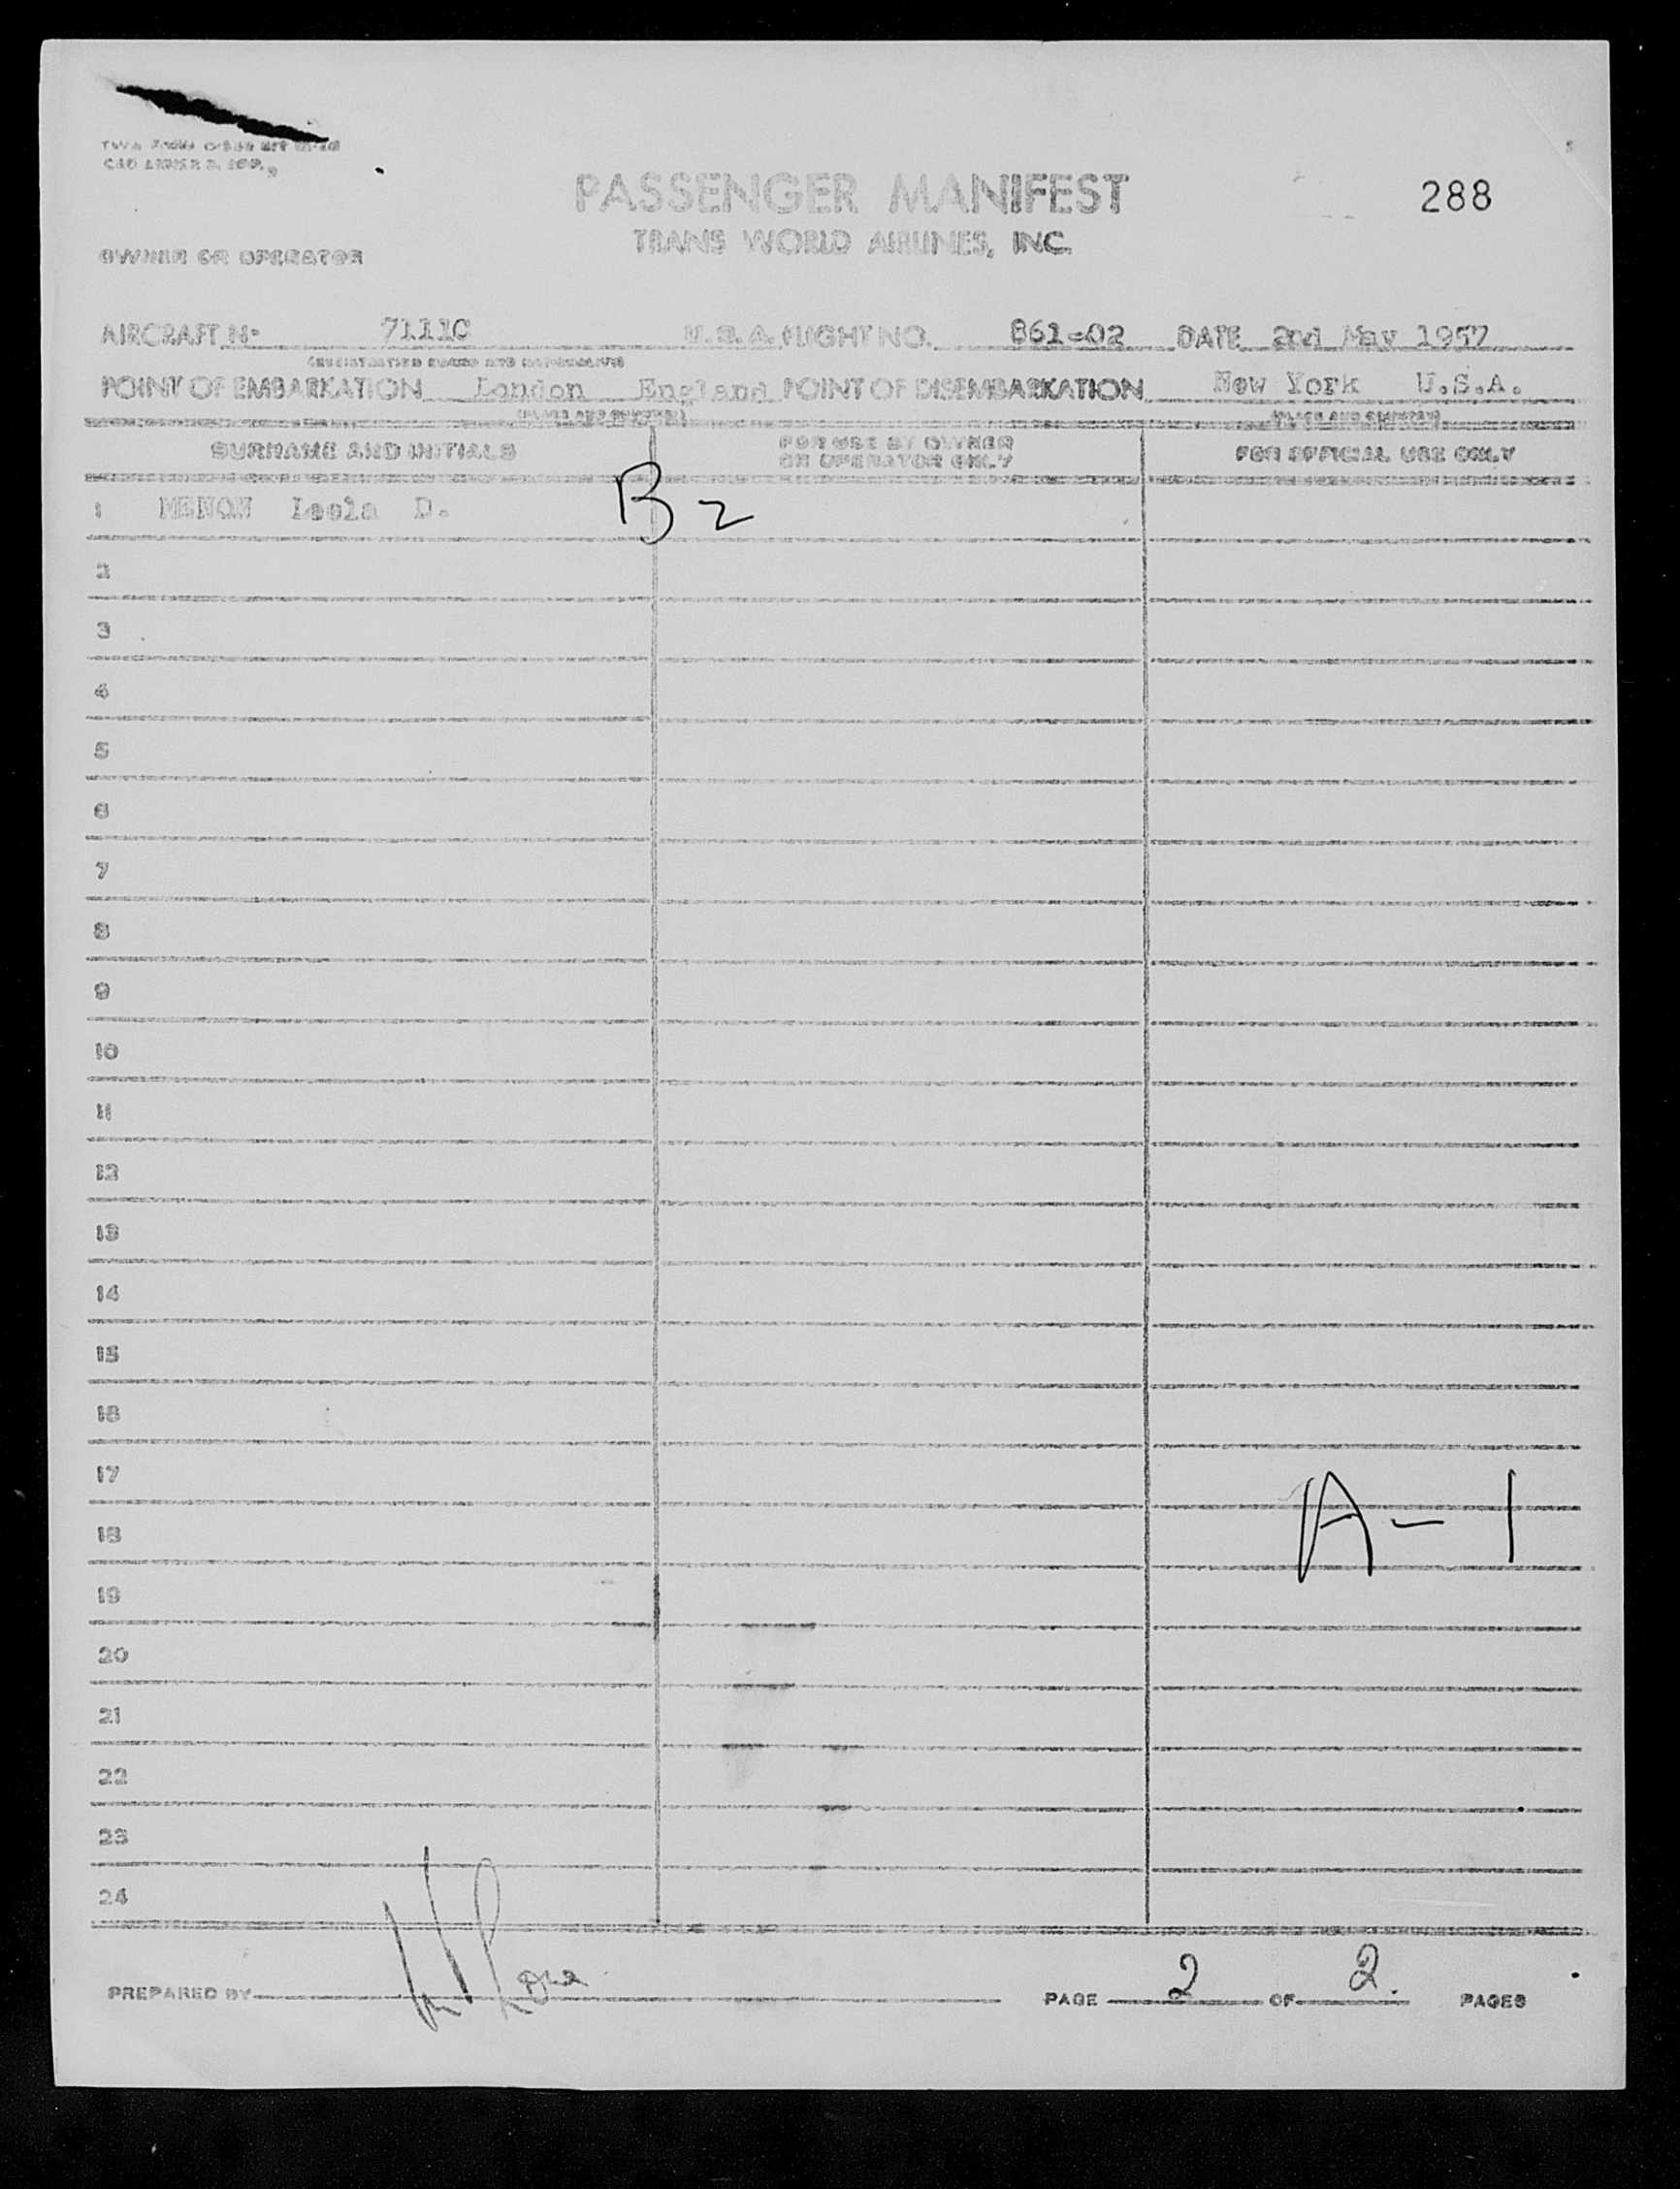 PASSENGER MANIFEST
288
TRANS WORLD AIRLINES, INC.
OWNER OR OPERATOR
AIRCRAFT No 7111C U.S.A. FLIGHT NO. 861-02 DATE 2nd May 1957
POINT OF EMBARKATION London England POINT OF DISEMBARKATION New York U.S.A.
(PLACE AND COUNTRY) (PLACE AND COUNTRY)
SURNAME AND INITIALS
FOR USE BY OWNER
OR OPERATOR ONLY
FOR OFFICIAL USE ONLY
1 MENON Leela D. B2
2
3
4
5
6
7
8
9
10
11
12
13
14
15
16
17
A-1
18
19
20
21
22
23
24
PREPARED BY
PAGE 2 OF 2. PAGES